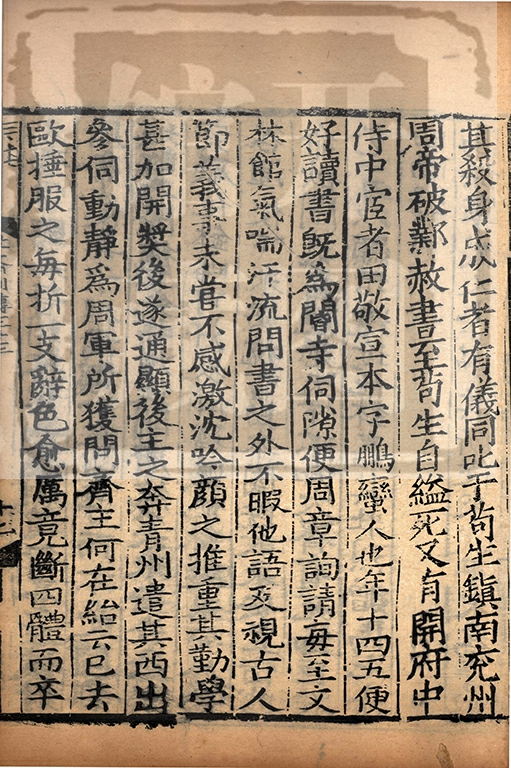 其殺身成仁者有儀同叱于苟生鎮南兖州
周帝破鄴赦書至苟生自縊死又有開府中
侍中宦者田敬宣一本字鵬蠻人也年十四五便
好讀書既爲閽寺伺隙便周章詢請每至文
林館氣喘汗流問書之外不暇他語及視古人
節義事未嘗不感激沈吟顔之推重其勤學
甚加開奬後遂通顯後主之奔青州遣其西出
參伺動靜爲周軍所獲問齊主何在紿云已去
歐捶服之每折一支辭色愈厲竟斷四體而卒